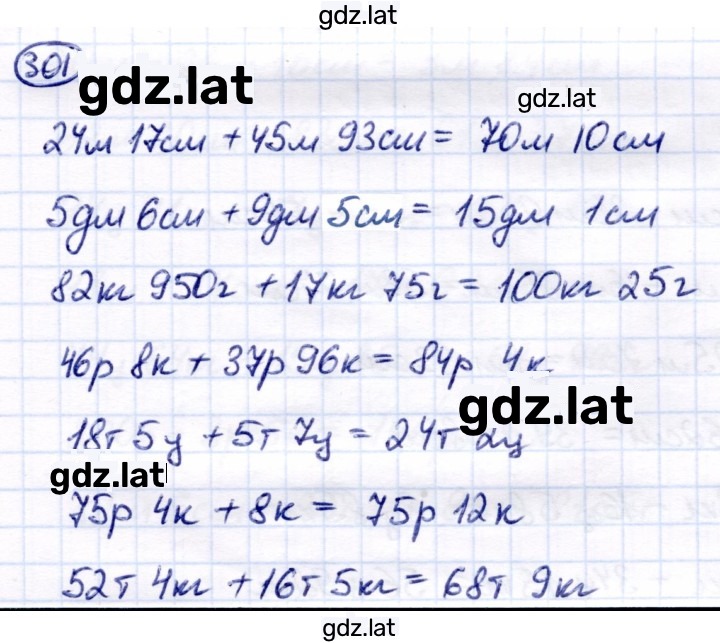 gdz.lat
301
gdz.lat
gdz.lat
24м 17см + 45м 93см = 70м 10см
5дм 6см + 9дм 5см = 15дм 1см
82кг 950г + 17кг 75г = 100кг 25г
46р 8к + 37р 96к = 84р 4к
gdz.lat
18т 5ц + 5т 7ц = 24т 2ц
gdz.lat
75р 4к + 8к = 75р 12к
52т 4кг + 16т 5кг = 68т 9кг
gdz.lat